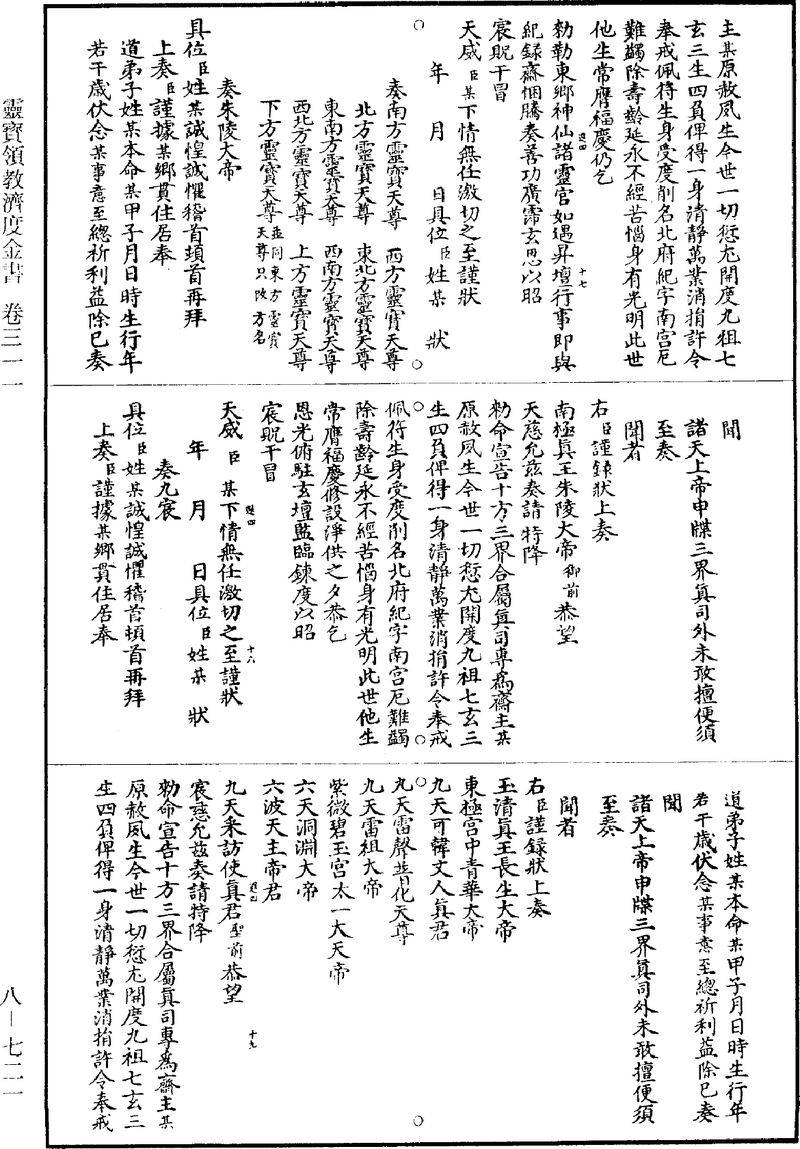 主某原赦夙生今世一切愆尤開度九祖七
玄三生四負俾得一身清靜萬業消捐許令
奉戒佩符生身受度削名北府紀字南宮厄
難蠲除壽齡延永不經苦惱身有光明此世
他生常膺福慶仍乞
勑勒東鄉神仙諸靈官如遇昇壇行事即與
紀錄齋悃騰奏善功廣霈玄恩以昭
宸貺干冒
天威臣某下情無任激切之至謹狀
年 月 日具位臣姓某 狀
奏南方靈寶天尊 西方靈寶天尊
北方靈寶天尊 東北方靈寶天尊
東南方靈寶天尊 西南方靈寶天尊
西北方靈寶天尊 上方靈寶天尊
下方靈寶天尊並同東方靈寶天尊只改方名
奏朱陵大帝
具位臣姓某誠惶誠懼稽首頓首再拜
上奏臣謹據某鄉貫住居奉
道弟子姓某本命某甲子月日時生行年
若干歲伏念某事意至總祈利益除已奏
聞
諸天上帝申牒三界真司外未敢擅便須
至奏
聞者
右臣謹錄狀上奏
南極真王朱陵大帝御前恭望
天慈允茲奏請特降
勑命宣告十方三界合屬真司專為齋主某
原赦夙生今世一切愆尤開度九祖七玄三
生四負俾得一身清靜萬業消捐許令奉戒
佩符生身受度削名北府紀字南宮厄難蠲
除壽齡延永不經苦惱身有光明此世他生
常膺福慶修設淨供之夕恭乞
恩光俯駐玄壇監臨鍊度以昭
宸貺干冒
天威臣某下情無任激切之至謹狀
年 月 日具位臣姓某 狀
奏九宸
具位臣姓某誠惶誠懼稽首頓首再拜
上奏臣謹據某鄉貫住居奉
道弟子姓某本命某甲子月日時生行年
若干歲伏念某事意至總祈利益除已奏
聞
諸天上帝申牒三界真司外未敢擅便須
至奏
聞者
右臣謹錄狀上奏
玉清真王長生大帝
東極宮中青華大帝
九天可韓丈人真君
九天雷聲普化天尊
九天雷祖大帝
紫微碧玉宮太一大天帝
六天洞淵大帝
六波天主帝君
九天采訪使真君聖前恭望
宸慈允茲奏請特降
勑命宣告十方三界合屬真司專為齋主某
原赦夙生今世一切愆尤開度九祖七玄三
生四負俾得一身清靜萬業消捐許令奉戒
靈寶領教濟度金書 卷三一一
八—七二一
十七
十八
十九